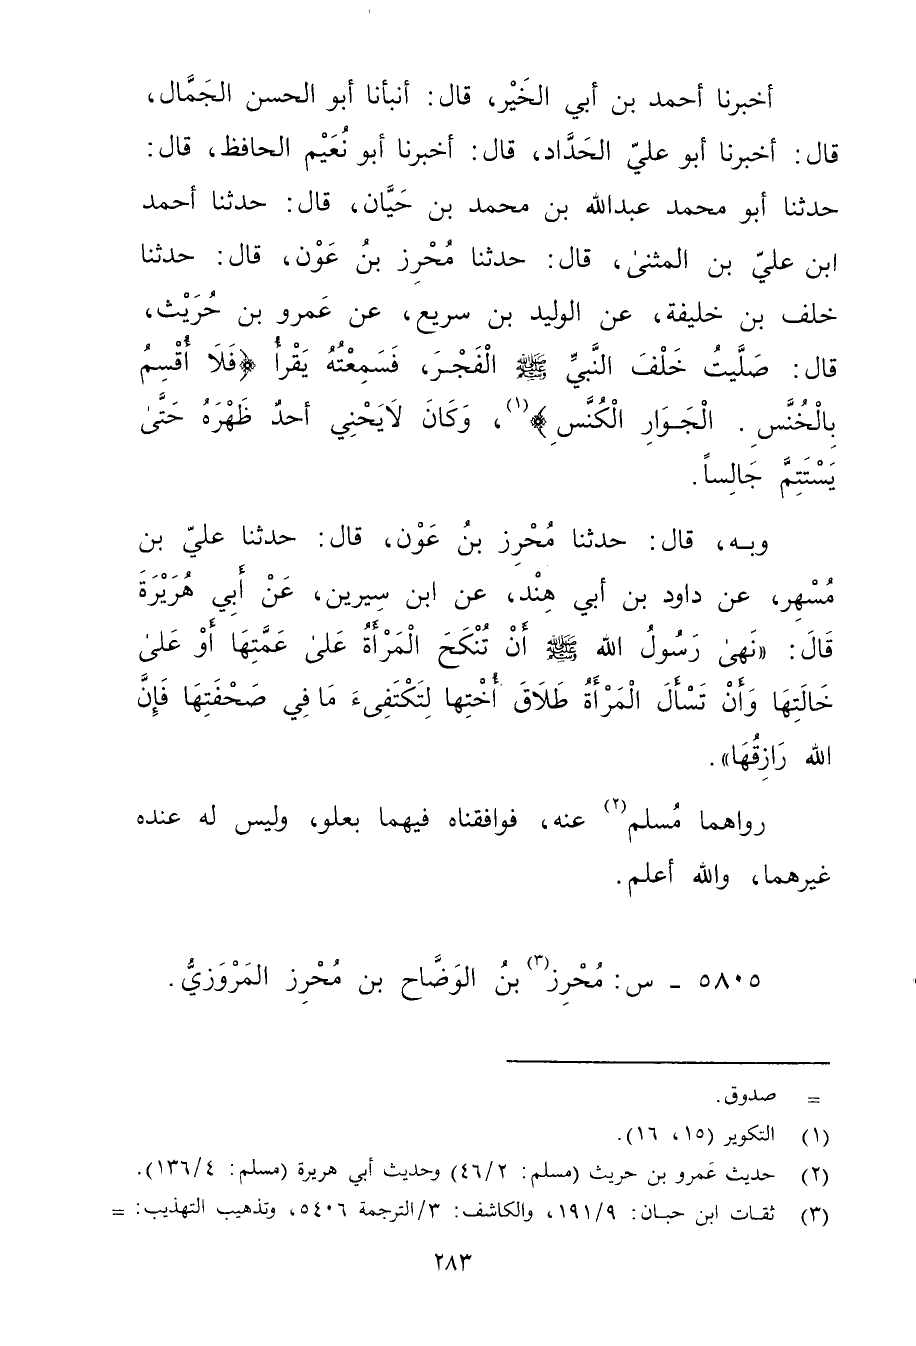 أخبرنا أحمد بن أبي الخَيْر، قال: أنبأنا أبو الحسن الجَمَّال،
قال: أخبرنا أبو عليّ الحَدَّاد، قال: أخبرنا أبو نُعَيْم الحافظ، قال:
حدثنا أبو محمد عبدالله بن محمد بن حَيَّان، قال: حدثنا أحمد
ابن عليّ بن المثنىٰ، قال: حدثنا مُحْرِز بنُ عَوْن، قال: حدثنا
خلف بن خليفة، عن الوليد بن سريع، عن عَمرو بن حُرَيْث،
قال: صَلَّيتُ خَلْفَ النَّبيِّ ﷺ الْفَجْـرَ، فَسَمِعْتُهُ يَقْرأُ ﴿فَلَا أُقْسِمُ
بِالْخُنَّسِ . الْجَـوَارِ الْكُنَّسِ﴾(١)، وَكَانَ لَايَحْنِي أحدٌ ظَهْرَهُ حَتَّىٰ
يَسْتَتِمَّ جَالِساً.
وبـه، قال: حدثنا مُحْرِز بنُ عَوْن، قال: حدثنا عليّ بن
مُسْهِر، عن داود بن أبي هِنْد، عن ابن سِيرين، عَنْ أَبِي هُرَيْرَةَ
قَالَ: «نَهىٰ رَسُولُ الله ﷺ أَنْ تُنْكَحَ الْمَرْأَةُ عَلىٰ عَمَّتِهَا أَوْ عَلىٰ
خَالَتِهَا وَأَنْ تَسْأَلَ الْمَرْأَةُ طَلَاقَ أُخْتِها لِتَكْتَفِىءَ مَا فِي صَحْفَتِهَا فَإِنَّ
الله رَازِقُهَا».
رواهما مُسلم(٢) عنه، فوافقناه فيهما بعلو، وليس له عنده
غيرهما، والله أعلم.
٥٨٠٥ ـ س: مُحْرِز(٣) بنُ الوَضَّاح بن مُحْرِز المَرْوَزيُّ.
= صدوق.
(١) التكوير (١٥، ١٦).
(٢) حديث عَمرو بن حريث (مسلم: ٤٦/٢) وحديث أبي هريرة (مسلم: ١٣٦/٤).
(٣) ثقـات ابن حبـان: ١٩١/٩، والكاشف: ٣/الترجمة ٥٤٠٦، وتذهيب التهذيب: =
٢٨٣